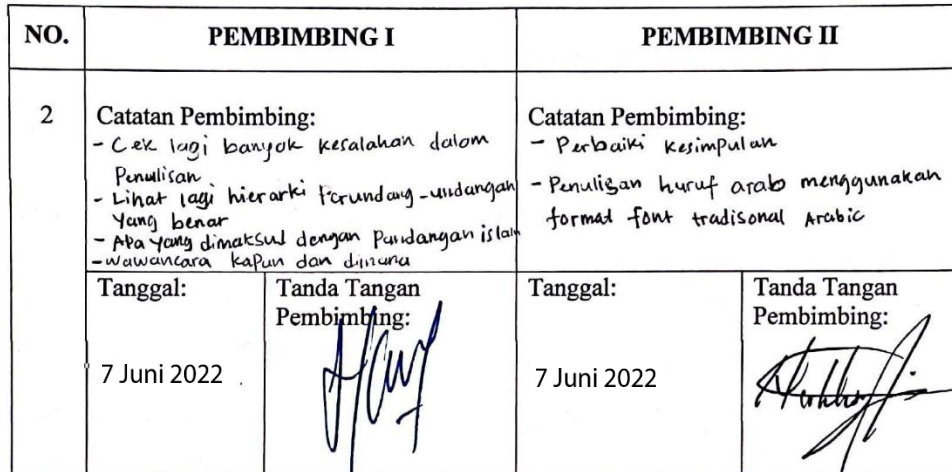 NO.
PEMBIMBING I
PEMBIMBING II
2
Catatan Pembimbing:
- Cek lagi banyak kesalahan dalam
Penulisan
- Lihat lagi hierarki Perundang-undangan
yang benar
- Apa yang dimaksud dengan Pandangan islam
- wawancara kapan dan dimana
Catatan Pembimbing:
- Perbaiki kesimpulan
- Penulisan huruf arab menggunakan
format font tradisonal Arabic
Tanggal:
7 Juni 2022
Tanda Tangan
Pembimbing:
Tanggal:
7 Juni 2022
Tanda Tangan
Pembimbing: